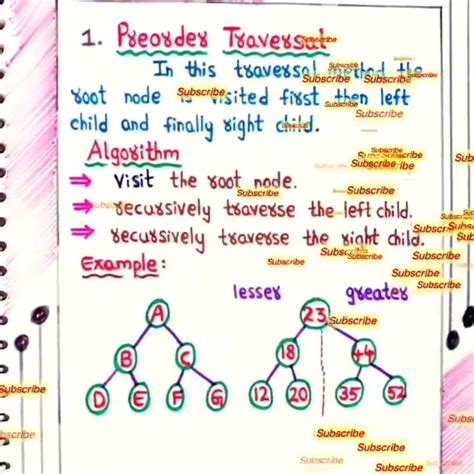 1. Preorder Traversal
In this traversal method the
root node is visited first then left
child and finally right child.
Algorithm
⇒ Visit the root node.
⇒ recursively traverse the left child.
⇒ recursively traverse the right child.
Example:
lesser greater
A 23
B C 18 44
D E F G 12 20 35 52
Subscribe
Subscribe
Subscribe
Subscribe
Subscribe
Subscribe
Subscribe
Subscribe
Subscribe
Subscribe
Subscribe
Subscribe
Subscribe
Subscribe
Subscribe
Subscribe
Subscribe
Subscribe